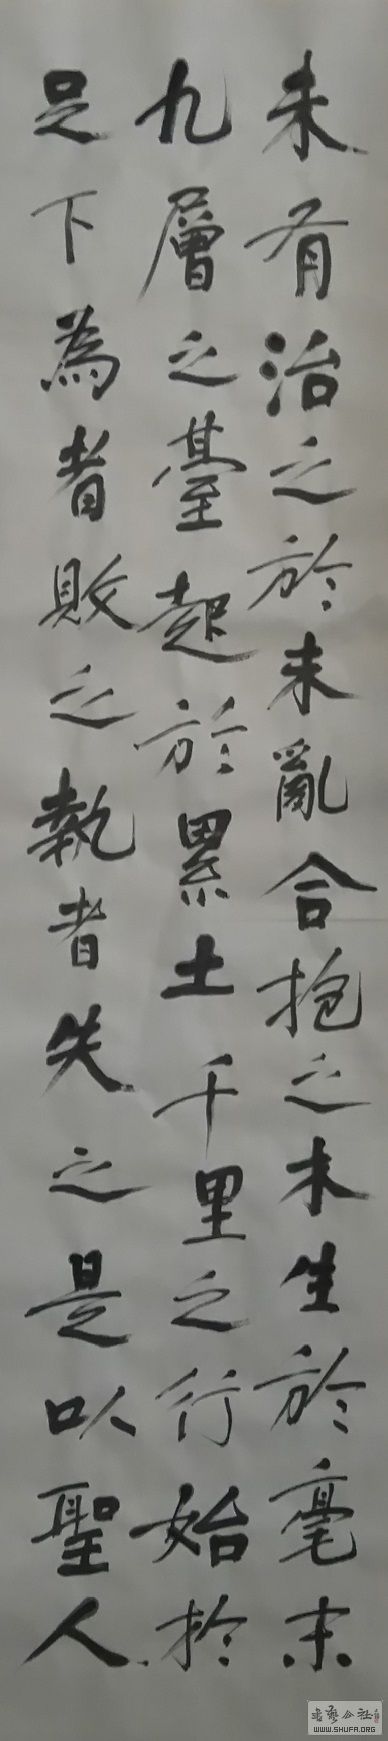 未有治之於未亂合抱之木生於毫末
九層之臺起於累土千里之行始於
足下為者敗之執者失之是以聖人
书艺公社
WWW.SHUFA.ORG